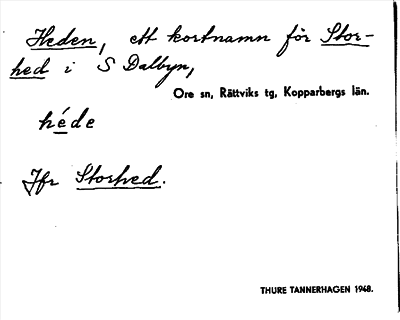 Heden, ett kortnamn för Stor-
hed i S Dalbyn,
Ore sn, Rättviks tg, Kopparbergs län.
héde
Jfr Storhed.
THURE TANNERHAGEN 1948.